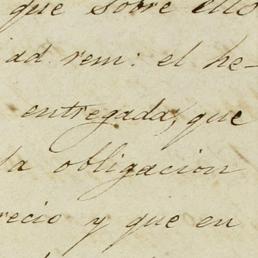 que sobre ellos
ad rem: el he-
entregada, que
la obligacion
recio y que en